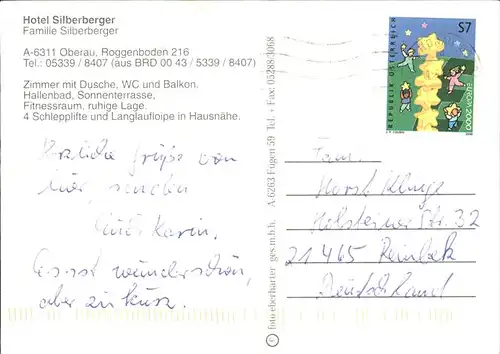 Hotel Silberberger
Familie Silberberger
A-6311 Oberau, Roggenboden 216
Tel.: 05339 / 8407 (aus BRD 00 43 / 5339 / 8407)
Zimmer mit Dusche, WC und Balkon.
Hallenbad, Sonnenterrasse,
Fitnessraum, ruhige Lage.
4 Schlepplifte und Langlaufloipe in Hausnähe.
Herzliche Grüße von
hier, senden
Karin.
Es ist wunderschön,
aber zu kurz.
foto eberharter ges.m.b.h. A-6263 Fügen 59 Tel. + Fax: 05288/4068
S7
REPUBLIK ÖSTERREICH
EUROPA 2000
Fam.
Horst Klinge
Holsteiner Str. 32
21465 Reinbek
Deutschland